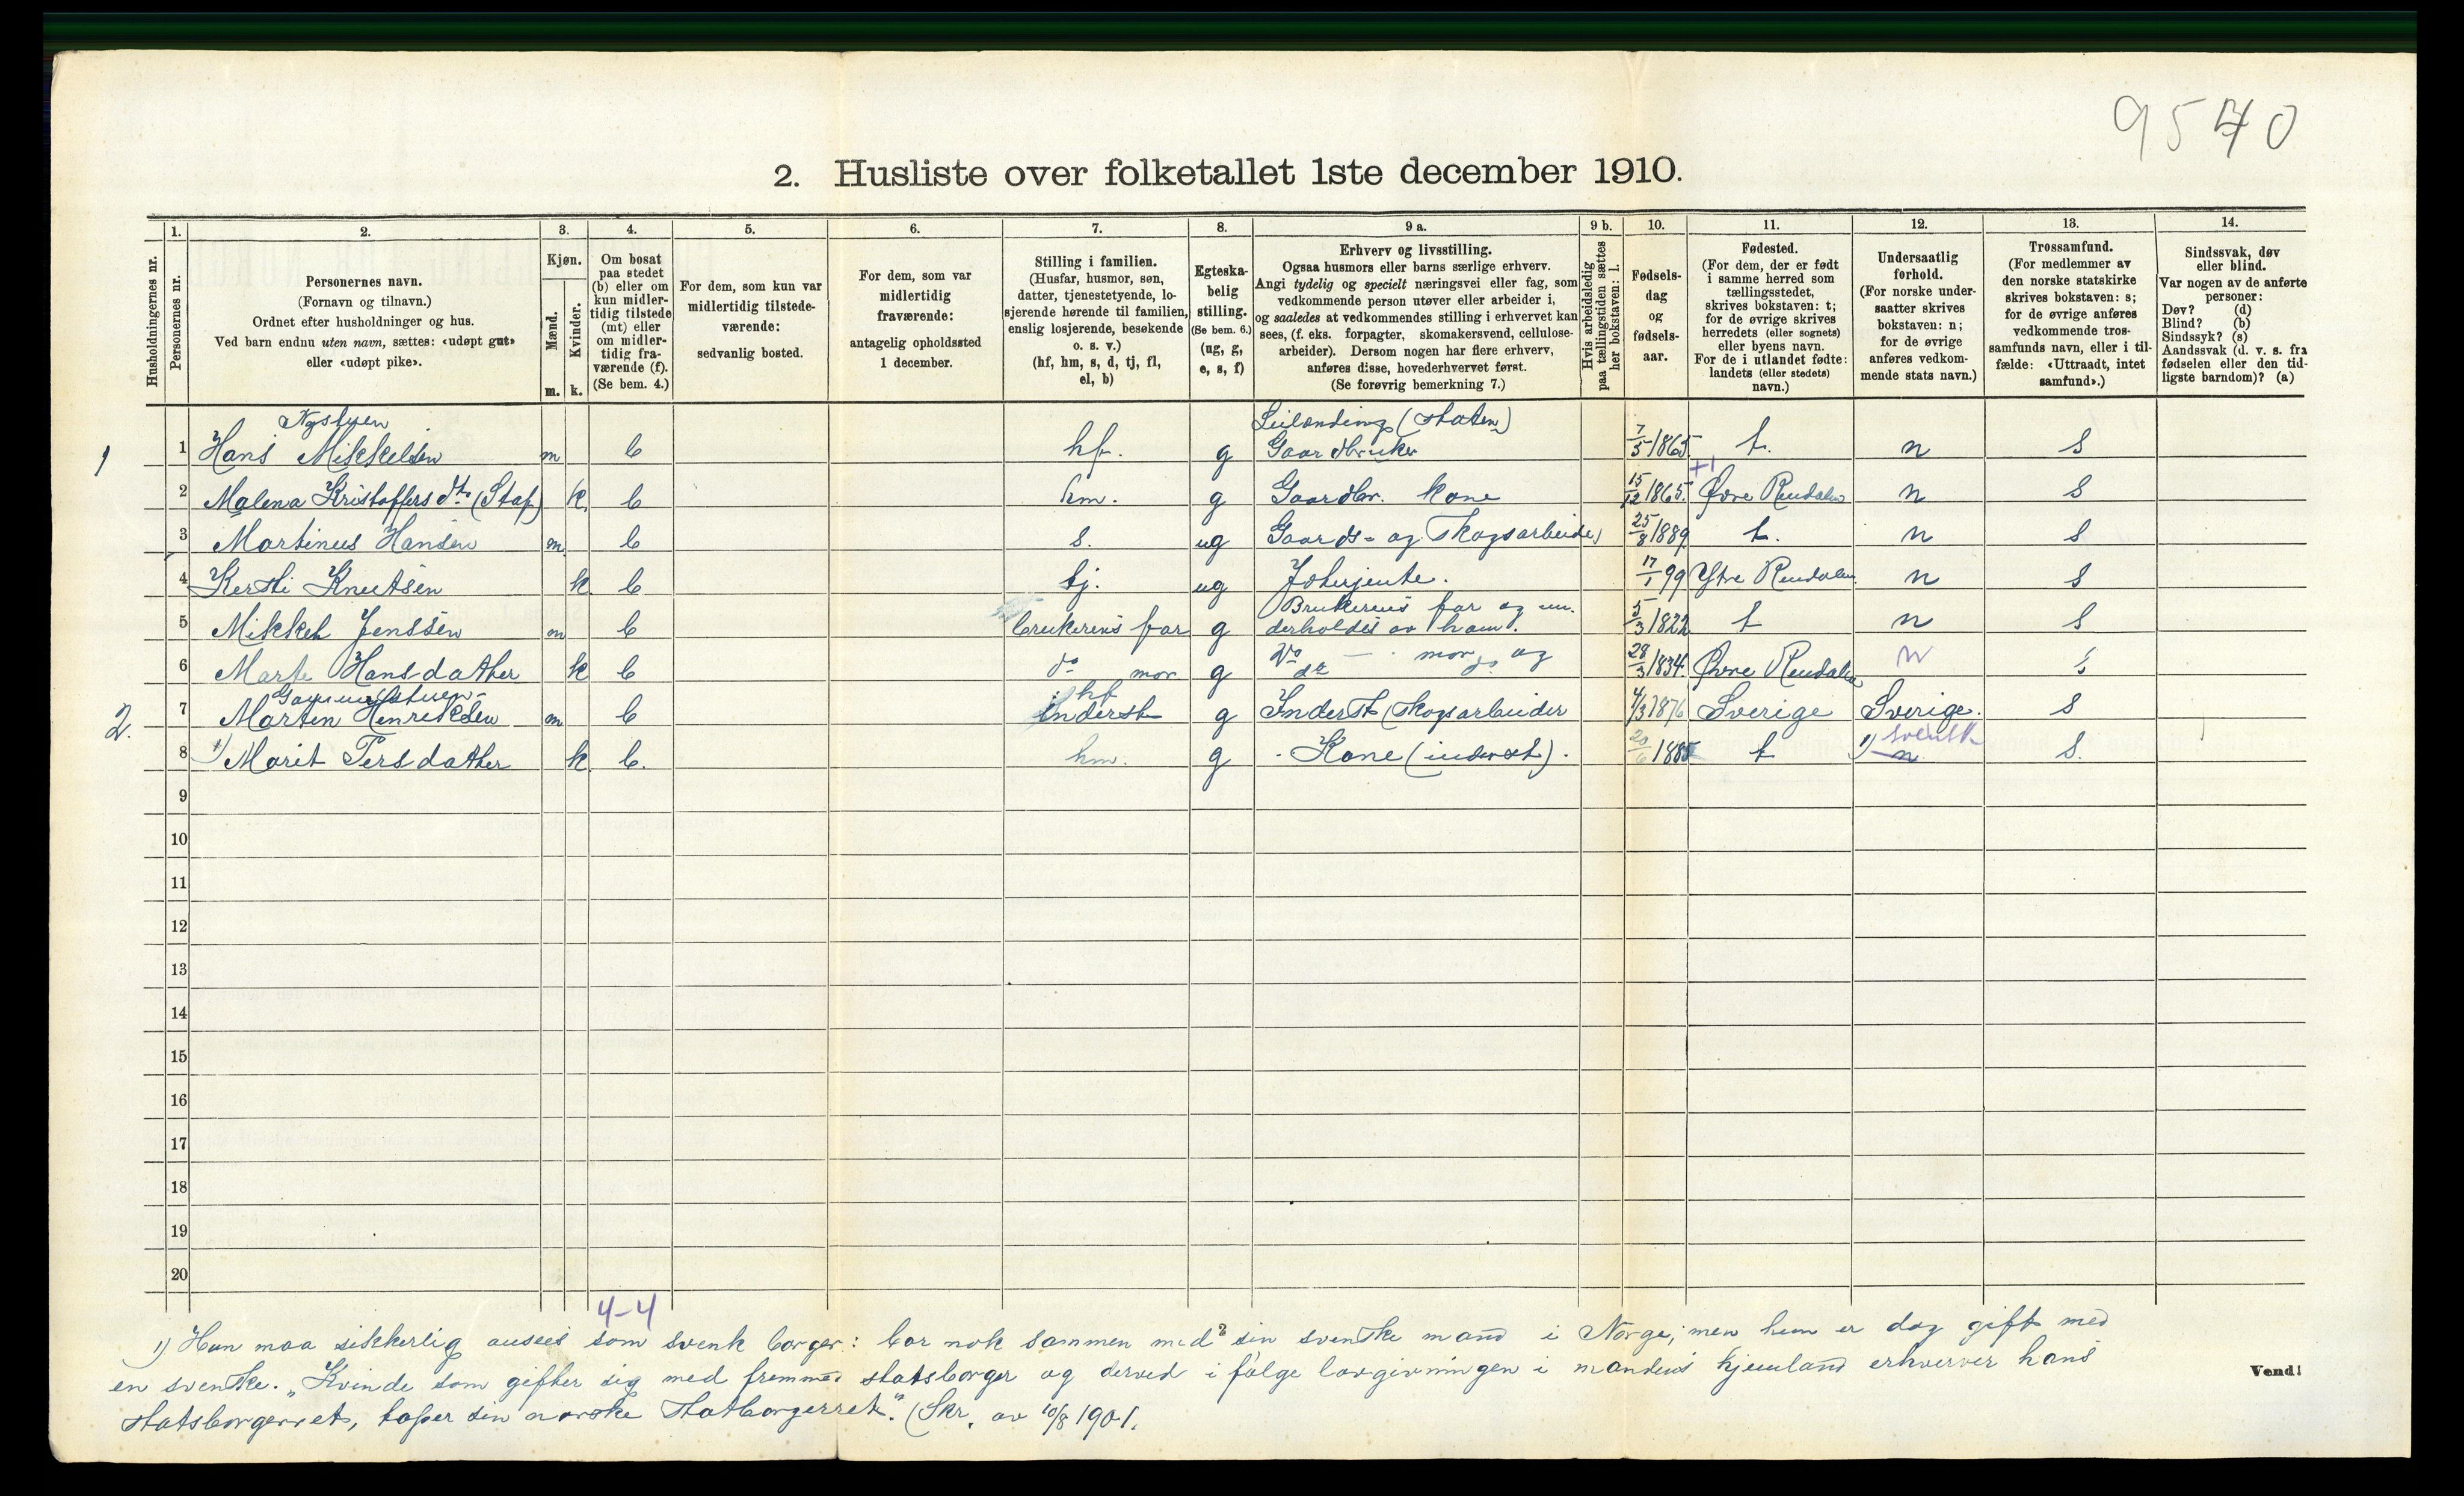 9540
2. Husliste over folketallet 1ste december 1910.
Husholdningernes nr.
1.
Personernes nr.
2.
Personernes navn.
(Fornavn og tilnavn.)
Ordnet efter husholdninger og hus.
Ved barn endnu uten navn, sættes: «udøpt gut»
eller «udøpt pike».
3.
Kjøn.
Mænd.
Kvinder.
m. k.
4.
Om bosat
paa stedet
(b) eller om
kun midler-
tidig tilstede
(mt) eller
om midler-
tidig fra-
værende (f).
(Se bem. 4.)
5.
For dem, som kun var
midlertidig tilstede-
værende:
sedvanlig bosted.
6.
For dem, som var
midlertidig
fraværende:
antagelig opholdssted
1 december.
7.
Stilling i familien.
(Husfar, husmor, søn,
datter, tjenestetyende, lo-
sjerende hørende til familien,
enslig losjerende, besøkende
o. s. v.)
(hf, hm, s, d, tj, fl,
el, b)
8.
Egteska-
belig
stilling.
(Se bem. 6.)
(ug, g,
e, s, f)
9 a.
Erhverv og livsstilling.
Ogsaa husmors eller barns særlige erhverv.
Angi tydelig og specielt næringsvei eller fag, som
vedkommende person utøver eller arbeider i,
og saaledes at vedkommendes stilling i erhvervet kan
sees, (f. eks. forpagter, skomakersvend, cellulose-
arbeider). Dersom nogen har flere erhverv,
anføres disse, hovederhvervet først.
(Se forøvrig bemerkning 7.)
9 b.
Hvis arbeidsledig
paa tællingstiden sættes
her bokstaven: l.
10.
Fødsels-
dag
og
fødsels-
aar.
11.
Fødested.
(For dem, der er født
i samme herred som
tællingsstedet,
skrives bokstaven: t;
for de øvrige skrives
herredets (eller sognets)
eller byens navn.
For de i utlandet fødte:
landets (eller stedets)
navn.)
12.
Undersaatlig
forhold.
(For norske under-
saatter skrives
bokstaven: n;
for de øvrige
anføres vedkom-
mende stats navn.)
13.
Trossamfund.
(For medlemmer av
den norske statskirke
skrives bokstaven: s;
for de øvrige anføres
vedkommende tros-
samfunds navn, eller i til-
fælde: «Uttraadt, intet
samfund».)
14.
Sindssvak, døv
eller blind.
Var nogen av de anførte
personer:
Døv? (d)
Blind? (b)
Sindssyk? (s)
Aandssvak (d. v. s. fra
fødselen eller den tid-
ligste barndom)? (a)
Nystuen Leilænding (staten)
1 1 Hans Mikkelsen m b hf. g Gaardbruker 7/5 1865 t. n s
2 Malena Kristoffersdtr (Stap) k. b hm. g Gaardbr. kone 15/12 1865. +1 Øvre Rendalen n s
3 Martinus Hansen m b s. ug Gaards- og skogsarbeider 25/8 1889 t. n s
4 Kersti Knutsen k b tj. ug 17/1 99 Ytre Rendalen n s
Brukerens far og un-
5 Mikkel Jenssen m b brukerens far g derholdes av ham. 5/3 1822 t n s
6 Marte Hansdatter k b do mor g do — mor og do 28/3 1834. Øvre Rendalen n s
Gammelstuen hf
2. 7 Morten Henriksen m b inderst g Inderst (skogsarbeider 4/3 1876 Sverige Sverige. s
8 1) Marit Persdatter k. b. hm. g Kone (inderst). 20/6 1885 t 1) n svensk s.
9
10
11
12
13
14
15
16
17
18
19
20
4-4
1) Hun maa sikkerlig ansees som svensk borger: bor nok sammen med sin svenske mand i Norge; men hun er dog gift med
en svenske. „Kvinde som gifter sig med fremmed statsborger og derved i følge lovgivningen i mandens hjemland erhverver hans
statsborgerret, taper sin norske statborgerret". (Skr. av 10/8 1901.
Vend!